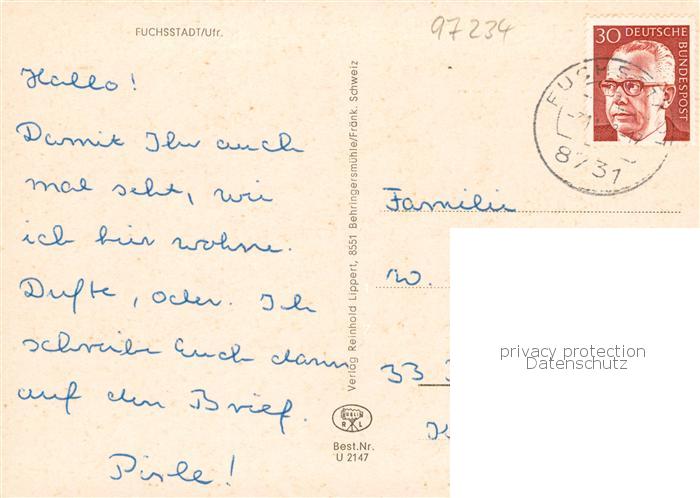 FUCHSSTADT/Ufr.
97234
30 DEUTSCHE
BUNDESPOST
8731
Hallo!
Damit Ihr auch
mal seht, wie
ich hier wohne.
Dufte, oder. Ich
schreibe Euch dann
auf den Brief.
Verlag Reinhold Lippert, 8551 Behringersmühle/Fränk. Schweiz
RUBLIN
R L
Best.Nr.
U 2147
Familie
W.
33
privacy protection
Datenschutz